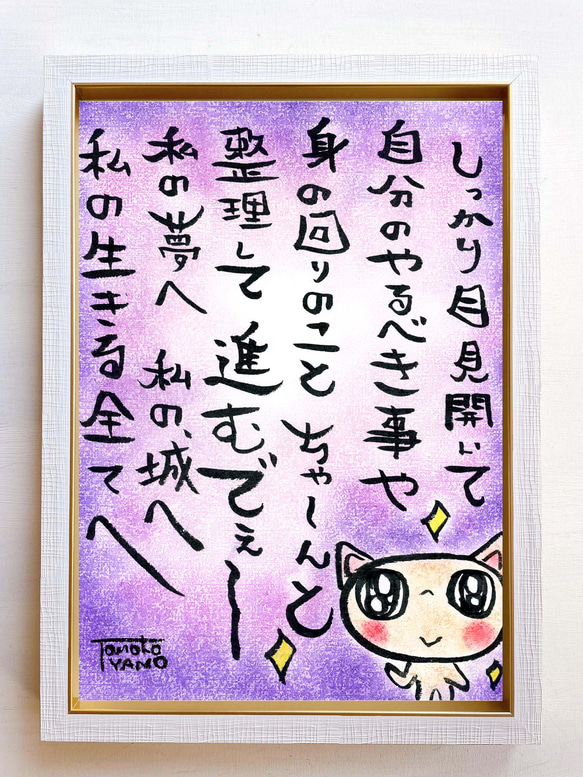 しっかり目見開いて
自分のやるべき事や
身の回りのこと ちゃーんと
整理して 進むでぇー
私の夢へ 私の城へ
私の生きる全てへ
Tomoko
YANO